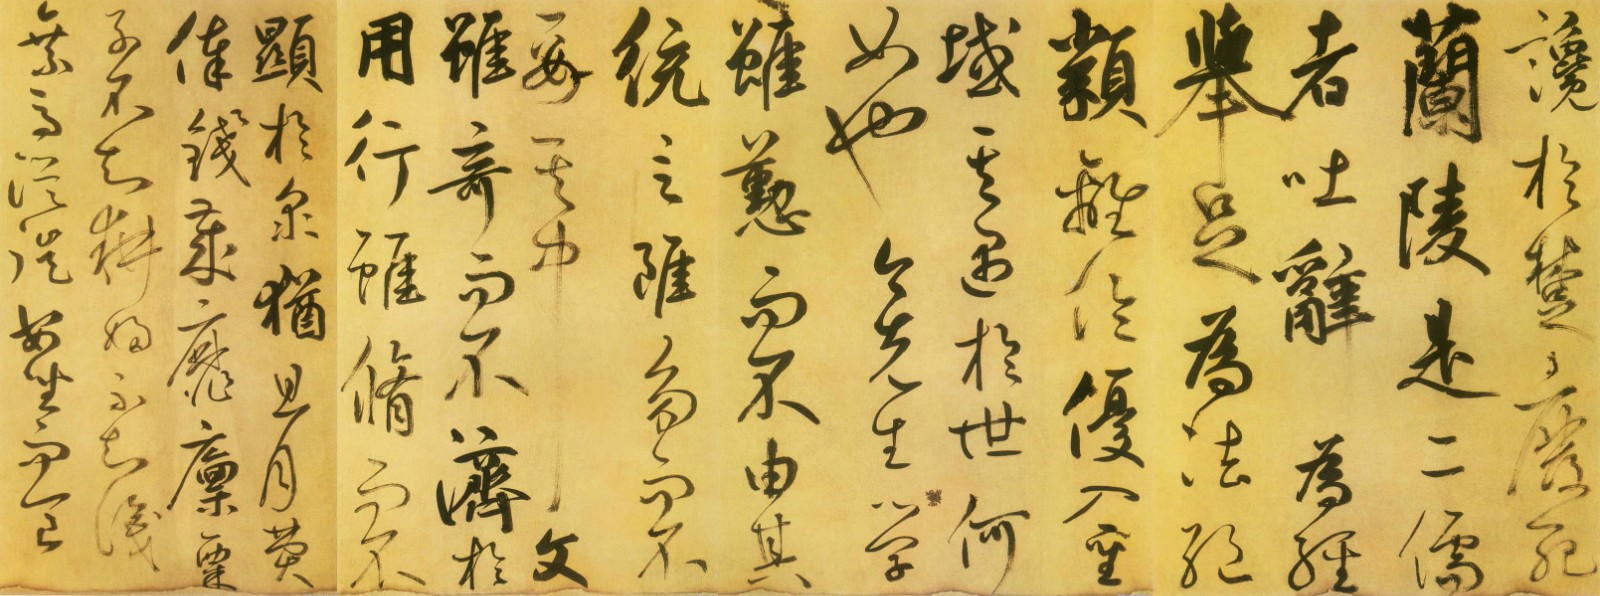 讒於楚廢死
蘭陵是二儒
者吐辭為經
舉足為法絕
類離倫優入聖
域其遇於世何
如也今先生學
雖懃而不由其
統言雖多而不
要其中文
雖奇而不濟於
用行雖脩而不
顯於衆猶且月費
俸錢歲靡廩粟
子不知耕婦不知織
乘馬從徒安坐而食